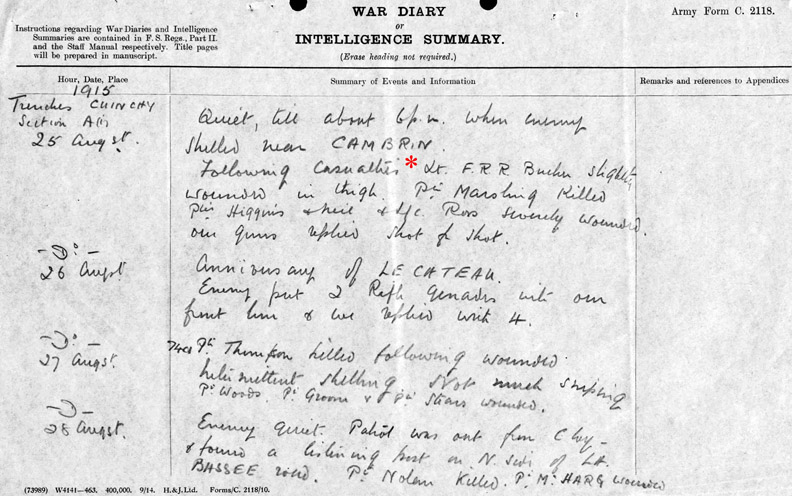 WAR DIARY
or
INTELLIGENCE SUMMARY.
(Erase heading not required.)
Army Form C. 2118.
Instructions regarding War Diaries and Intelligence
Summaries are contained in F. S. Regs., Part II.
and the Staff Manual respectively. Title pages
will be prepared in manuscript.
Hour, Date, Place
Summary of Events and Information
Remarks and references to Appendices
1915
Trenches CUINCHY
Section A(1)
25 Augst.
Quiet, till about 6 p.m. when enemy
shelled near CAMBRIN.
Following Casualties * Lt. F.R.R. slightly
wounded in thigh. Pte Marsling Killed
Ptes Higgins & Neil & L/c. Ross severely wounded.
our guns replied shot for shot.
- Do: -
26 Augst
Anniversary of LE CATEAU.
Enemy put 2 Rifle Grenades into our
front line & we replied with 4.
- Do: -
27 Augst.
Pte Thompson killed following wounded
Intermittent shelling. Not much sniping
Pte Woods. Pte Groom & Pte Stears wounded.
- Do -
28 Augst.
Enemy quiet. Patrol was out from C Coy -
& found a listening post on N. side of LA
BASSEE road. Pte Nolan Killed. Pte McHARG wounded
(73989) W4141—463. 400,000. 9/14. H.&J.Ltd. Forms/C. 2118/10.